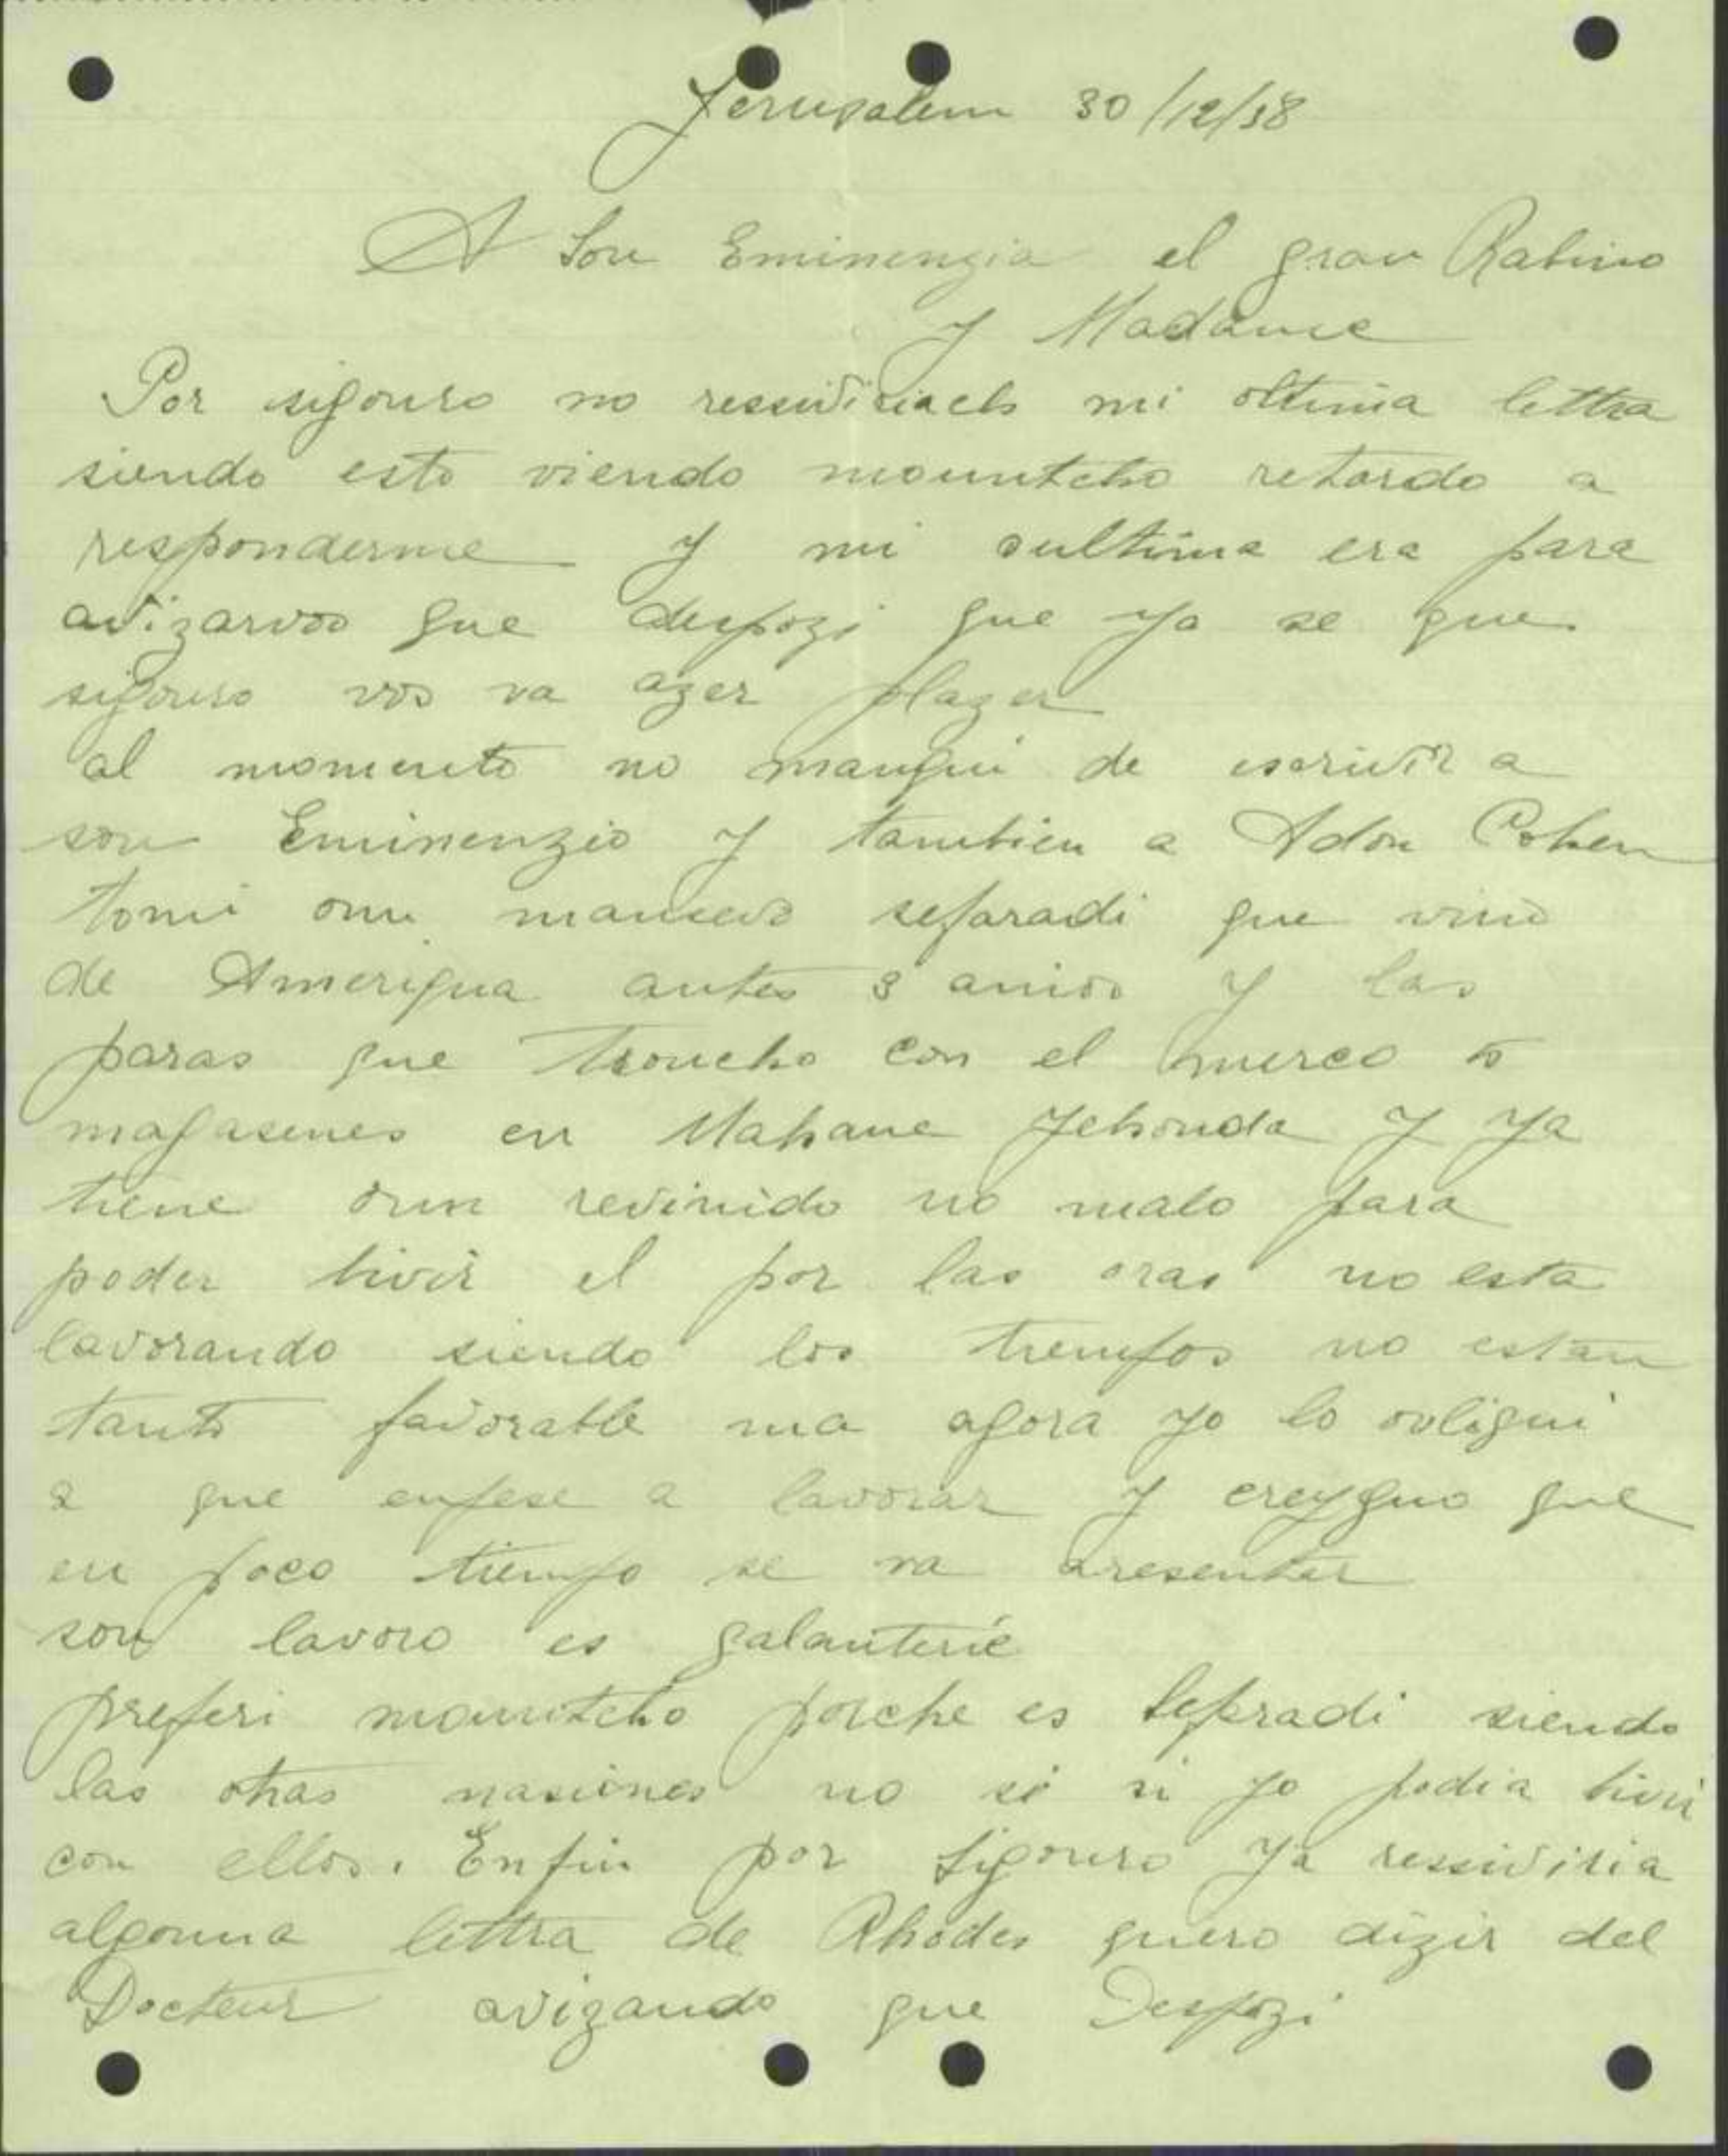 Jerusalem 30/12/38
A Son Eminenzia el gran Rabino
y Madame
Por sigouro no ressiviriach mi oltima lettra
siendo esto viendo mountcho retardo a
responderme y mi oultima era para
avizarvos que despozi que ya se que
sigouro vos va azer plazer
al momento no manqui de escrivir a
son Eminenzia y tambien a Adon Cohen
tomi oun mansevo sefaradi que vino
de Ameriqua antes 3 anios y las
paras que troucho con el merco 5
magasenes en Mahane Jehouda y ya
tiene oun revinido no malo para
poder bivir el por las oras no esta
lavorando siendo los tiempos no estan
tanto favorable ma agora yo lo obligui
a que enpese a lavorar y creyguo que
en poco tiempo se va aresentar
son lavoro es galanterie
preferi mountcho porche es Sepradi siendo
las otras nasiones no se si yo podia bivir
con ellos. Enfin por sigouro ya ressiviria
algouna lettra de Rhodes quero dizir del
Docteur avizando que Despozi